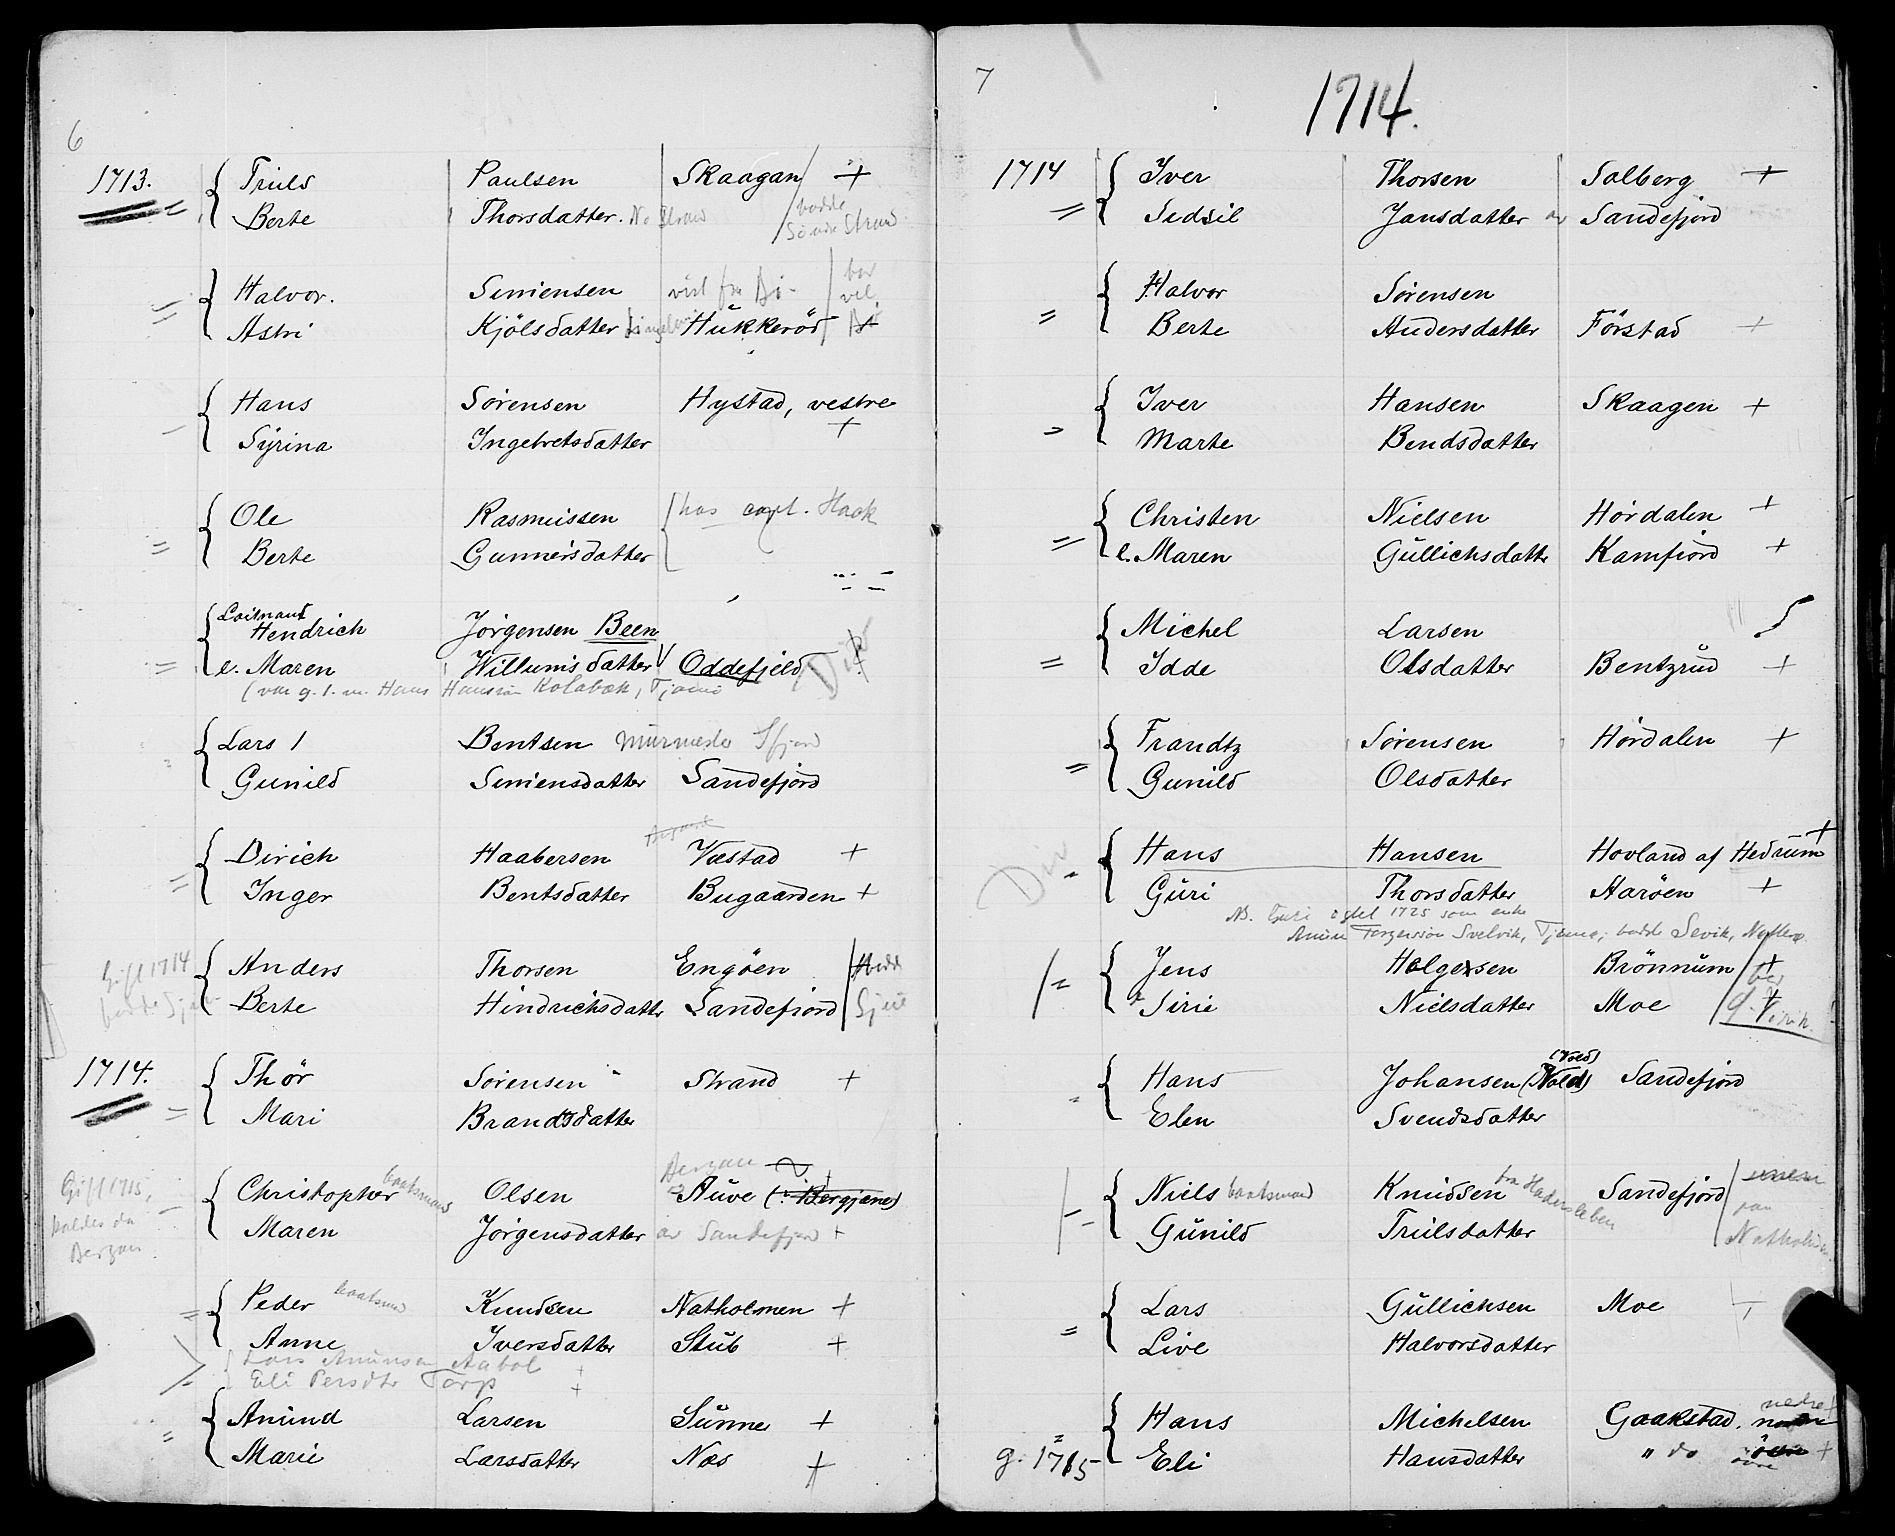 6
1713. Truls Paulsen Skaagan +
Berte Thorsdatter. No Strand bodde Søndre Strand
Halvor. Simensen vist fra Bø - bor vel
Astri Kjölsdatter Hukkeröd Bø
Hans Sørensen Hystad, vestre
Syrina Ingebretsdatter +
Ole Rasmussen hos capt. Haak
Berte Gunnersdatter
Loitnant
Hendrich Jörgensen Been
e. Maren Willumsdatter Oddefjeld
(var g. 1. m. Hans Hansen Kolabæk, Tjømø
Lars 1 Bentsen murmester Sfjord
Gunild Simensdatter Sandefjord
Dirich Haabersen Væstad +
Inger Bentsdatter Bugaarden +
Gift 1714 Anders Thorsen Engöen bodde
bodde Berte Hindrichsdatter Sandefiord
1714. Thor Sørensen Strand +
Mari Brandtsdatter
Bergan
Gift 1715, Christopher baatsmans Olsen Auve (: Bergjane) +
kaldes da Maren Jörgensdatter av Sandefjord +
Bergan
Peder baatsmand Knudsen Natholmen +
Anne Iversdatter Stub +
Lars Amunsen Aabol +
Eli Persdtr Torp +
Amund Larsen Sunne +
Marie Larsdatter Næs +
7
1714.
1714 Iver Thorsen Solberg +
Sidsil Jansdatter av Sandefjord
Halvor Sørensen
Berte Andersdatter Förstad +
Iver Hansen Skaagen +
Marte Bendsdatter
Christen Nielsen Hördalen +
e. Maren Gullichsdatter Kamfiord +
Michel Larsen
Idde Olsdatter Bentzrud +
Frandtz Sørensen Hördalen +
Gunild Olsdatter
Hans Hansen Hovland af Hedrum +
Guri Thorsdatter Haröen +
NB. Guri 1725 som enke
Amun Torgersen Svelvik, Tjømø; bodde Sevik, Nøtterø.
Jens Holgersen Brönnum +
Sirie Nielsdatter Moe
(Vold)
Hans Johansen (Vold) Sandefjord
Elen Svendsdatter
Niels baatsmand Knudsen fra Hadersleben Sandefjord
Gunild Trulsdatter paa Natholmen
Lars Gullichsen Moe +
Live Halvorsdatter
nedre
Hans Michelsen Gaakstad.
g. 1715 Eli Hansdatter " do övre +